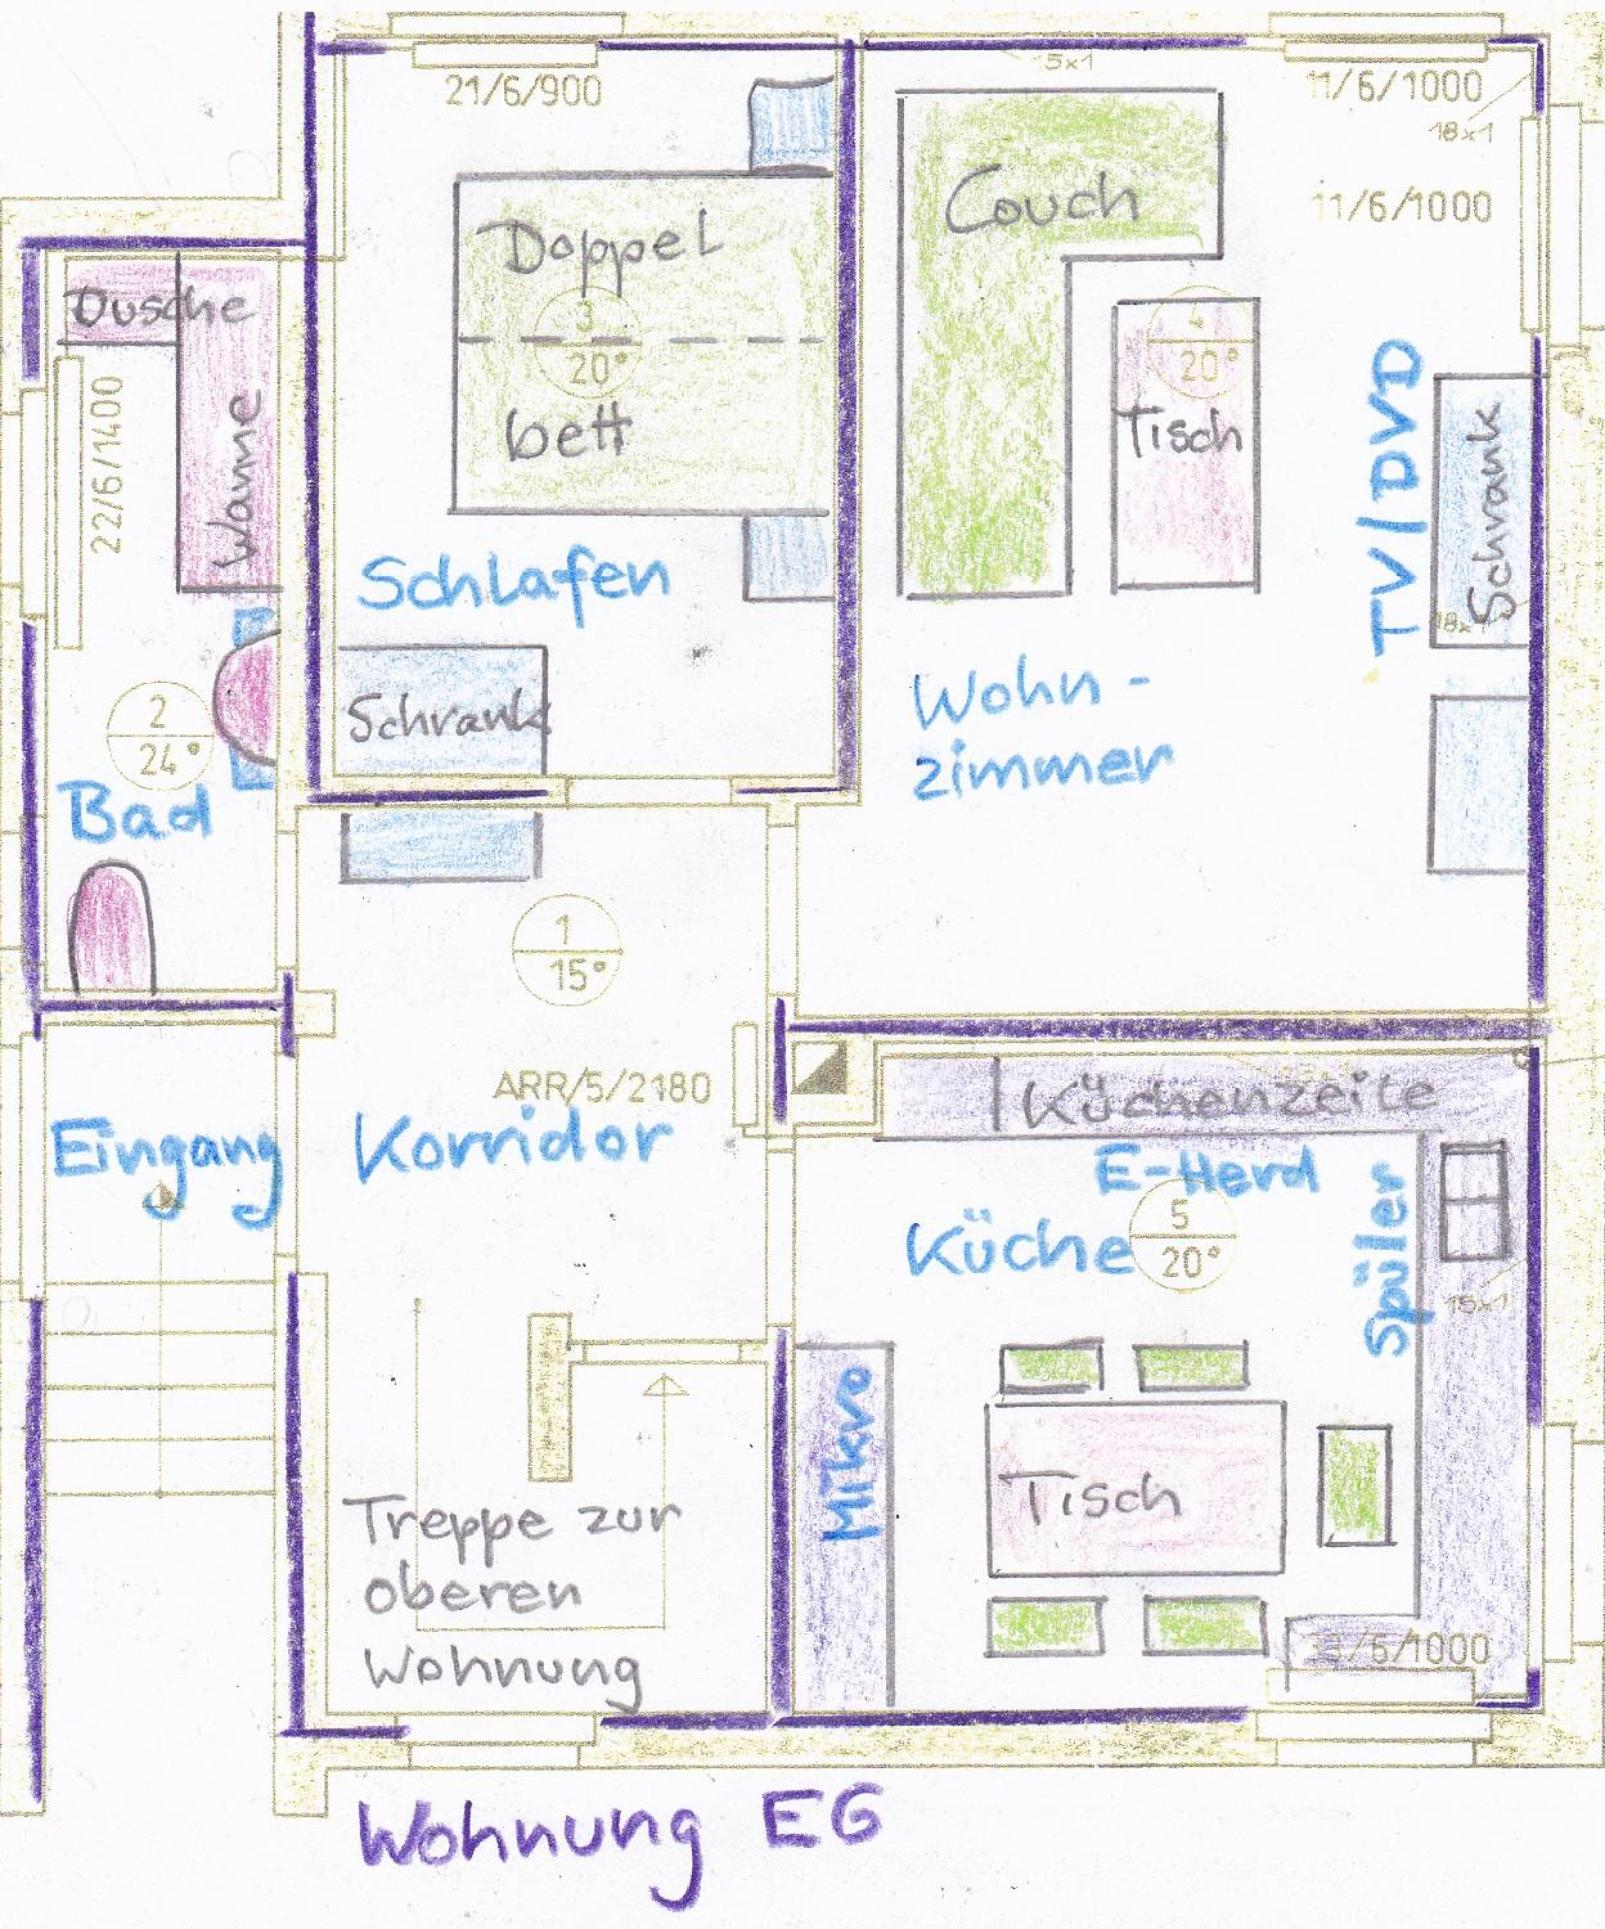 21/6/900
15x1
11/6/1000
18x1
11/6/1000
Couch
Doppel
3
20°
bett
4
20°
Tisch
Dusche
Wanne
22/6/1400
TV/DVD
Schrank
18x1
Schlafen
Schrank
Wohn-
zimmer
2
24°
Bad
1
15°
ARR/5/2180
Korridor
Eingang
Küchenzeile
E-Herd
Küche
5
20°
Spüler
15x1
Mikro
Tisch
Treppe zur
oberen
Wohnung
/6/1000
Wohnung EG